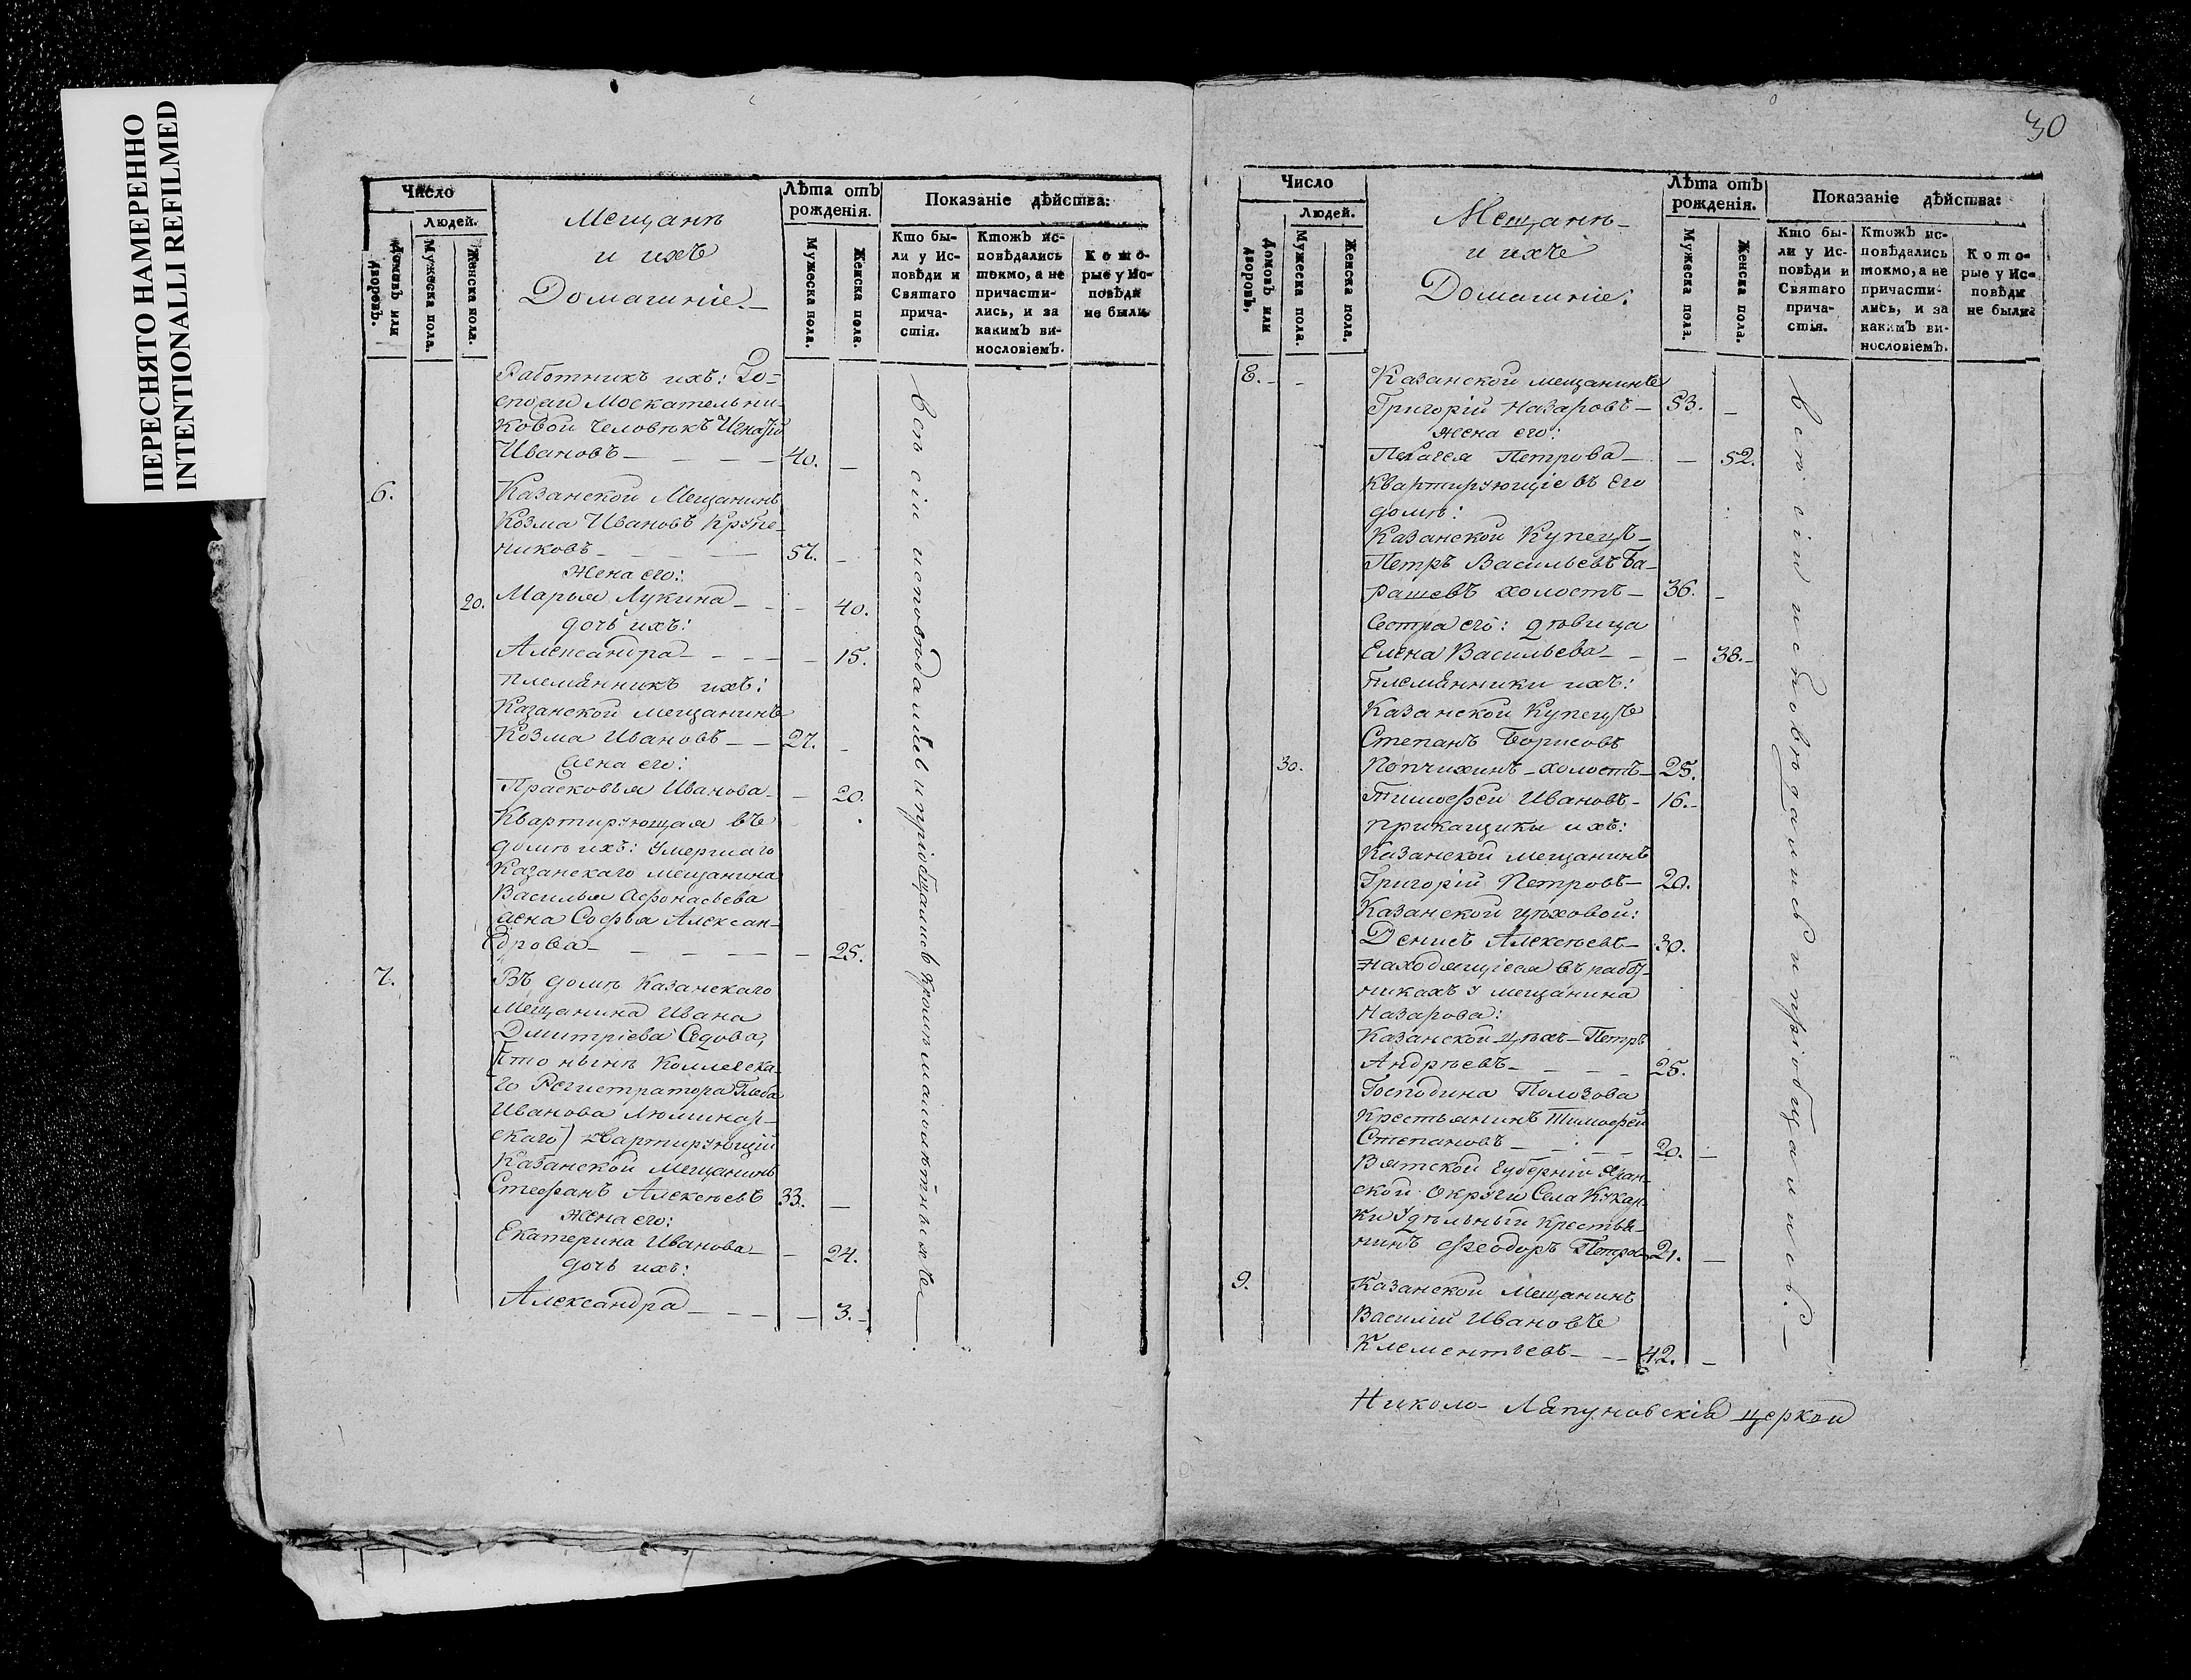 ПЕРЕСНЯТО НАМЕРЕННО
INTENTIONALLI REFILMED
Число
Людей.
Домовъ или дворовъ.
Мужеска пола.
Женска пола.
Мещанѣ
и ихъ
Домашніе.
Лѣта отъ
рожденія.
Мужеска пола.
Женска пола.
Показаніе дѣйства:
Кто бы-
ли у Ис-
повѣди и
Святаго
прича-
стія.
Ктожъ ис-
повѣдались
токмо, а не
причасти-
лись, и за
какимъ ви-
нословіемъ.
Кото-
рые у Ис-
повѣди
не были.
Работникъ ихъ: Го-
спожи Москательни-
ковой человѣкъ Игнатій
Ивановъ — 40. —
6. Казанской Мещанинъ
Козма Ивановъ Крупе-
никовъ — 57. —
Жена его:
20. Марья Лукина — 40.
дочь ихъ:
Александра — 15.
племянникъ ихъ:
Казанской мещанинъ
Козма Ивановъ — 27. —
Жена его:
Прасковья Иванова — 20.
Квартирующая въ
домѣ ихъ: умершаго
Казанскаго мещанина
Василья Афонасьева
жена Софья Алексан-
дрова — 25.
7. Въ домѣ Казанскаго
Мещанина Ивана
Дмитріева Седова,
(что нынѣ Коллежска-
го Регистратора Глеба
Иванова Люминар-
скаго) квартирующій
Казанской Мещанинъ
Стефанъ Алексѣевъ 33. —
Жена его:
Екатерина Иванова — 24.
дочь ихъ:
Александра — 3.
всѣ сіи исповѣдались и пріобщались кромѣ малолѣтныхъ
30
Число
Людей.
Домовъ или дворовъ.
Мужеска пола.
Женска пола.
Мещанѣ
и ихъ
Домашніе:
Лѣта отъ
рожденія.
Мужеска пола.
Женска пола.
Показаніе дѣйства:
Кто бы-
ли у Ис-
повѣди и
Святаго
прича-
стія.
Ктожъ ис-
повѣдались
токмо, а не
причасти-
лись, и за
какимъ ви-
нословіемъ.
Кото-
рые у Ис-
повѣди
не были.
8. Казанской мещанинъ
Григорій Назаровъ — 53. —
Жена его:
Пелагея Петрова — 52.
Квартирующіе въ его
домѣ:
Казанской Купецъ
Петръ Васильевъ Ба-
рашевъ холостъ — 36. —
Сестра его: дѣвица
Елена Васильева — 38.
Племянники ихъ:
Казанской Купецъ
Степанъ Борисовъ
30. холостъ — 25.
Тимофей Ивановъ — 16.
прикащики ихъ:
Казанской мещанинъ
Григорій Петровъ — 20.
Казанской цѣховой:
Денисъ Алексѣевъ — 30.
Находящіеся въ работ-
никахъ у мещанина
Назарова:
Казанской цѣхъ — Петръ
Андрѣевъ — 25.
Господина Полозова
Крестьянинъ Тимофей
Степановъ — 20. —
Вятской Губерніи Яран-
ской Округи Села Кукар-
ки Удѣльный Крестья-
нинъ Феодоръ Петровъ 21. —
9. Казанской Мещанинъ
Василій Ивановъ
Клементьевъ — 42. —
всѣ сіи исповѣдались и пріобщались.
Николо-Ляпуновскія церкви